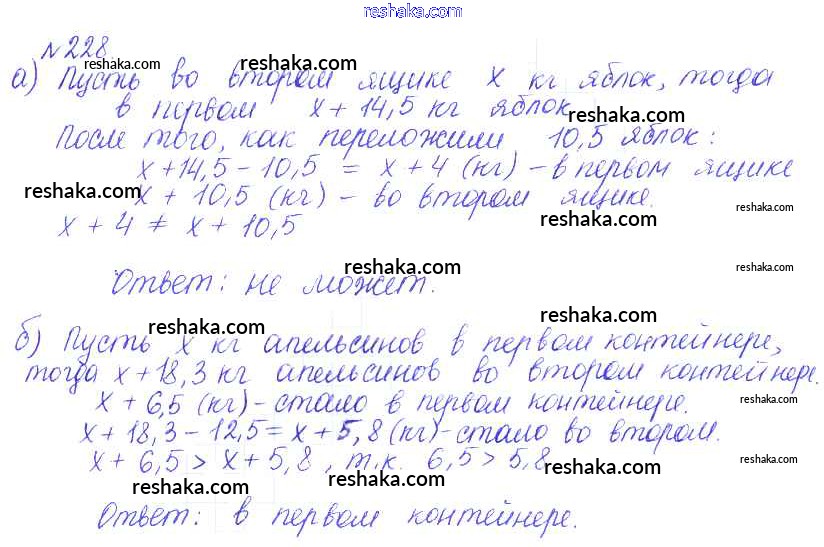 reshaka.com
№228
reshaka.com reshaka.com
а) Пусть во втором ящике x кг яблок, тогда
в первом x + 14,5 кг яблок
reshaka.com
После того, как переложили 10,5 яблок:
x + 14,5 - 10,5 = x + 4 (кг) - в первом ящике
reshaka.com
x + 10,5 (кг) - во втором ящике.
reshaka.com reshaka.com
x + 4 ≠ x + 10,5
reshaka.com reshaka.com
Ответ: не может.
reshaka.com reshaka.com
б) Пусть x кг апельсинов в первом контейнере,
тогда x + 18,3 кг апельсинов во втором контейнере.
reshaka.com reshaka.com
x + 6,5 (кг) - стало в первом контейнере.
x + 18,3 - 12,5 = x + 5,8 (кг) - стало во втором.
x + 6,5 > x + 5,8, т.к. 6,5 > 5,8
reshaka.com reshaka.com
reshaka.com reshaka.com
Ответ: в первом контейнере.